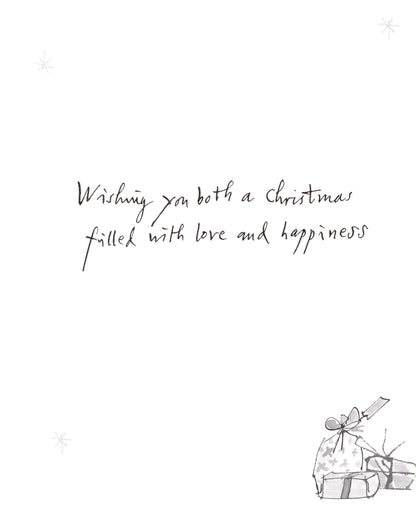 Wishing you both a Christmas
filled with love and happiness